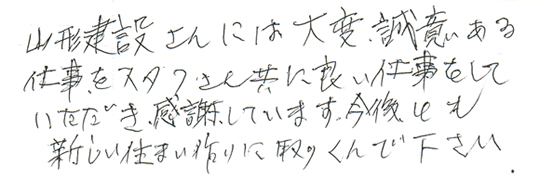 山形建設さんには大変、誠意ある
仕事をスタフさん共に良い仕事をして
いただき、感謝しています。今後とも
新しい住まい作りに取りくんで下さい